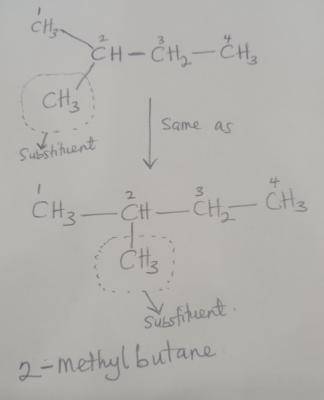 1
CH₃
2
CH — CH₂ — CH₃
3
4
CH₃
Substituent
Same as
1
CH₃ — CH — CH₂ — CH₃
2
3
4
CH₃
Substituent.
2-methylbutane